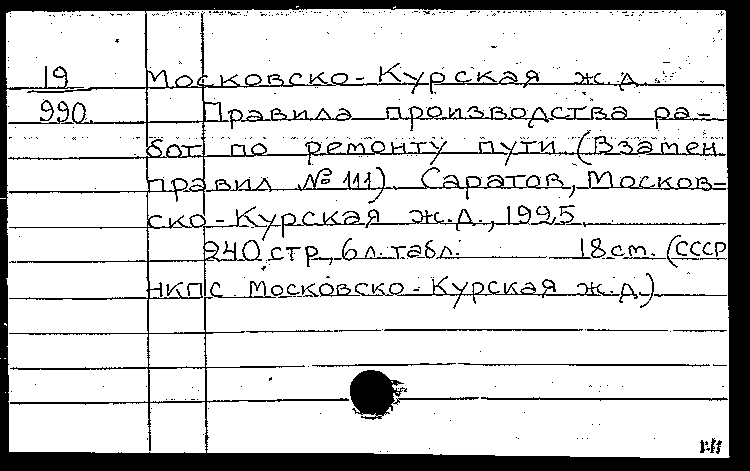 19 Московско-Курская ж.д.
990. Правила производства ра-
бот по ремонту пути (Взамен
правил № 111). Саратов, Москов-
ско-Курская ж.д., 1925.
240 стр., 6 л. табл. 18 см. (СССР
НКПС Московско-Курская ж.д.)